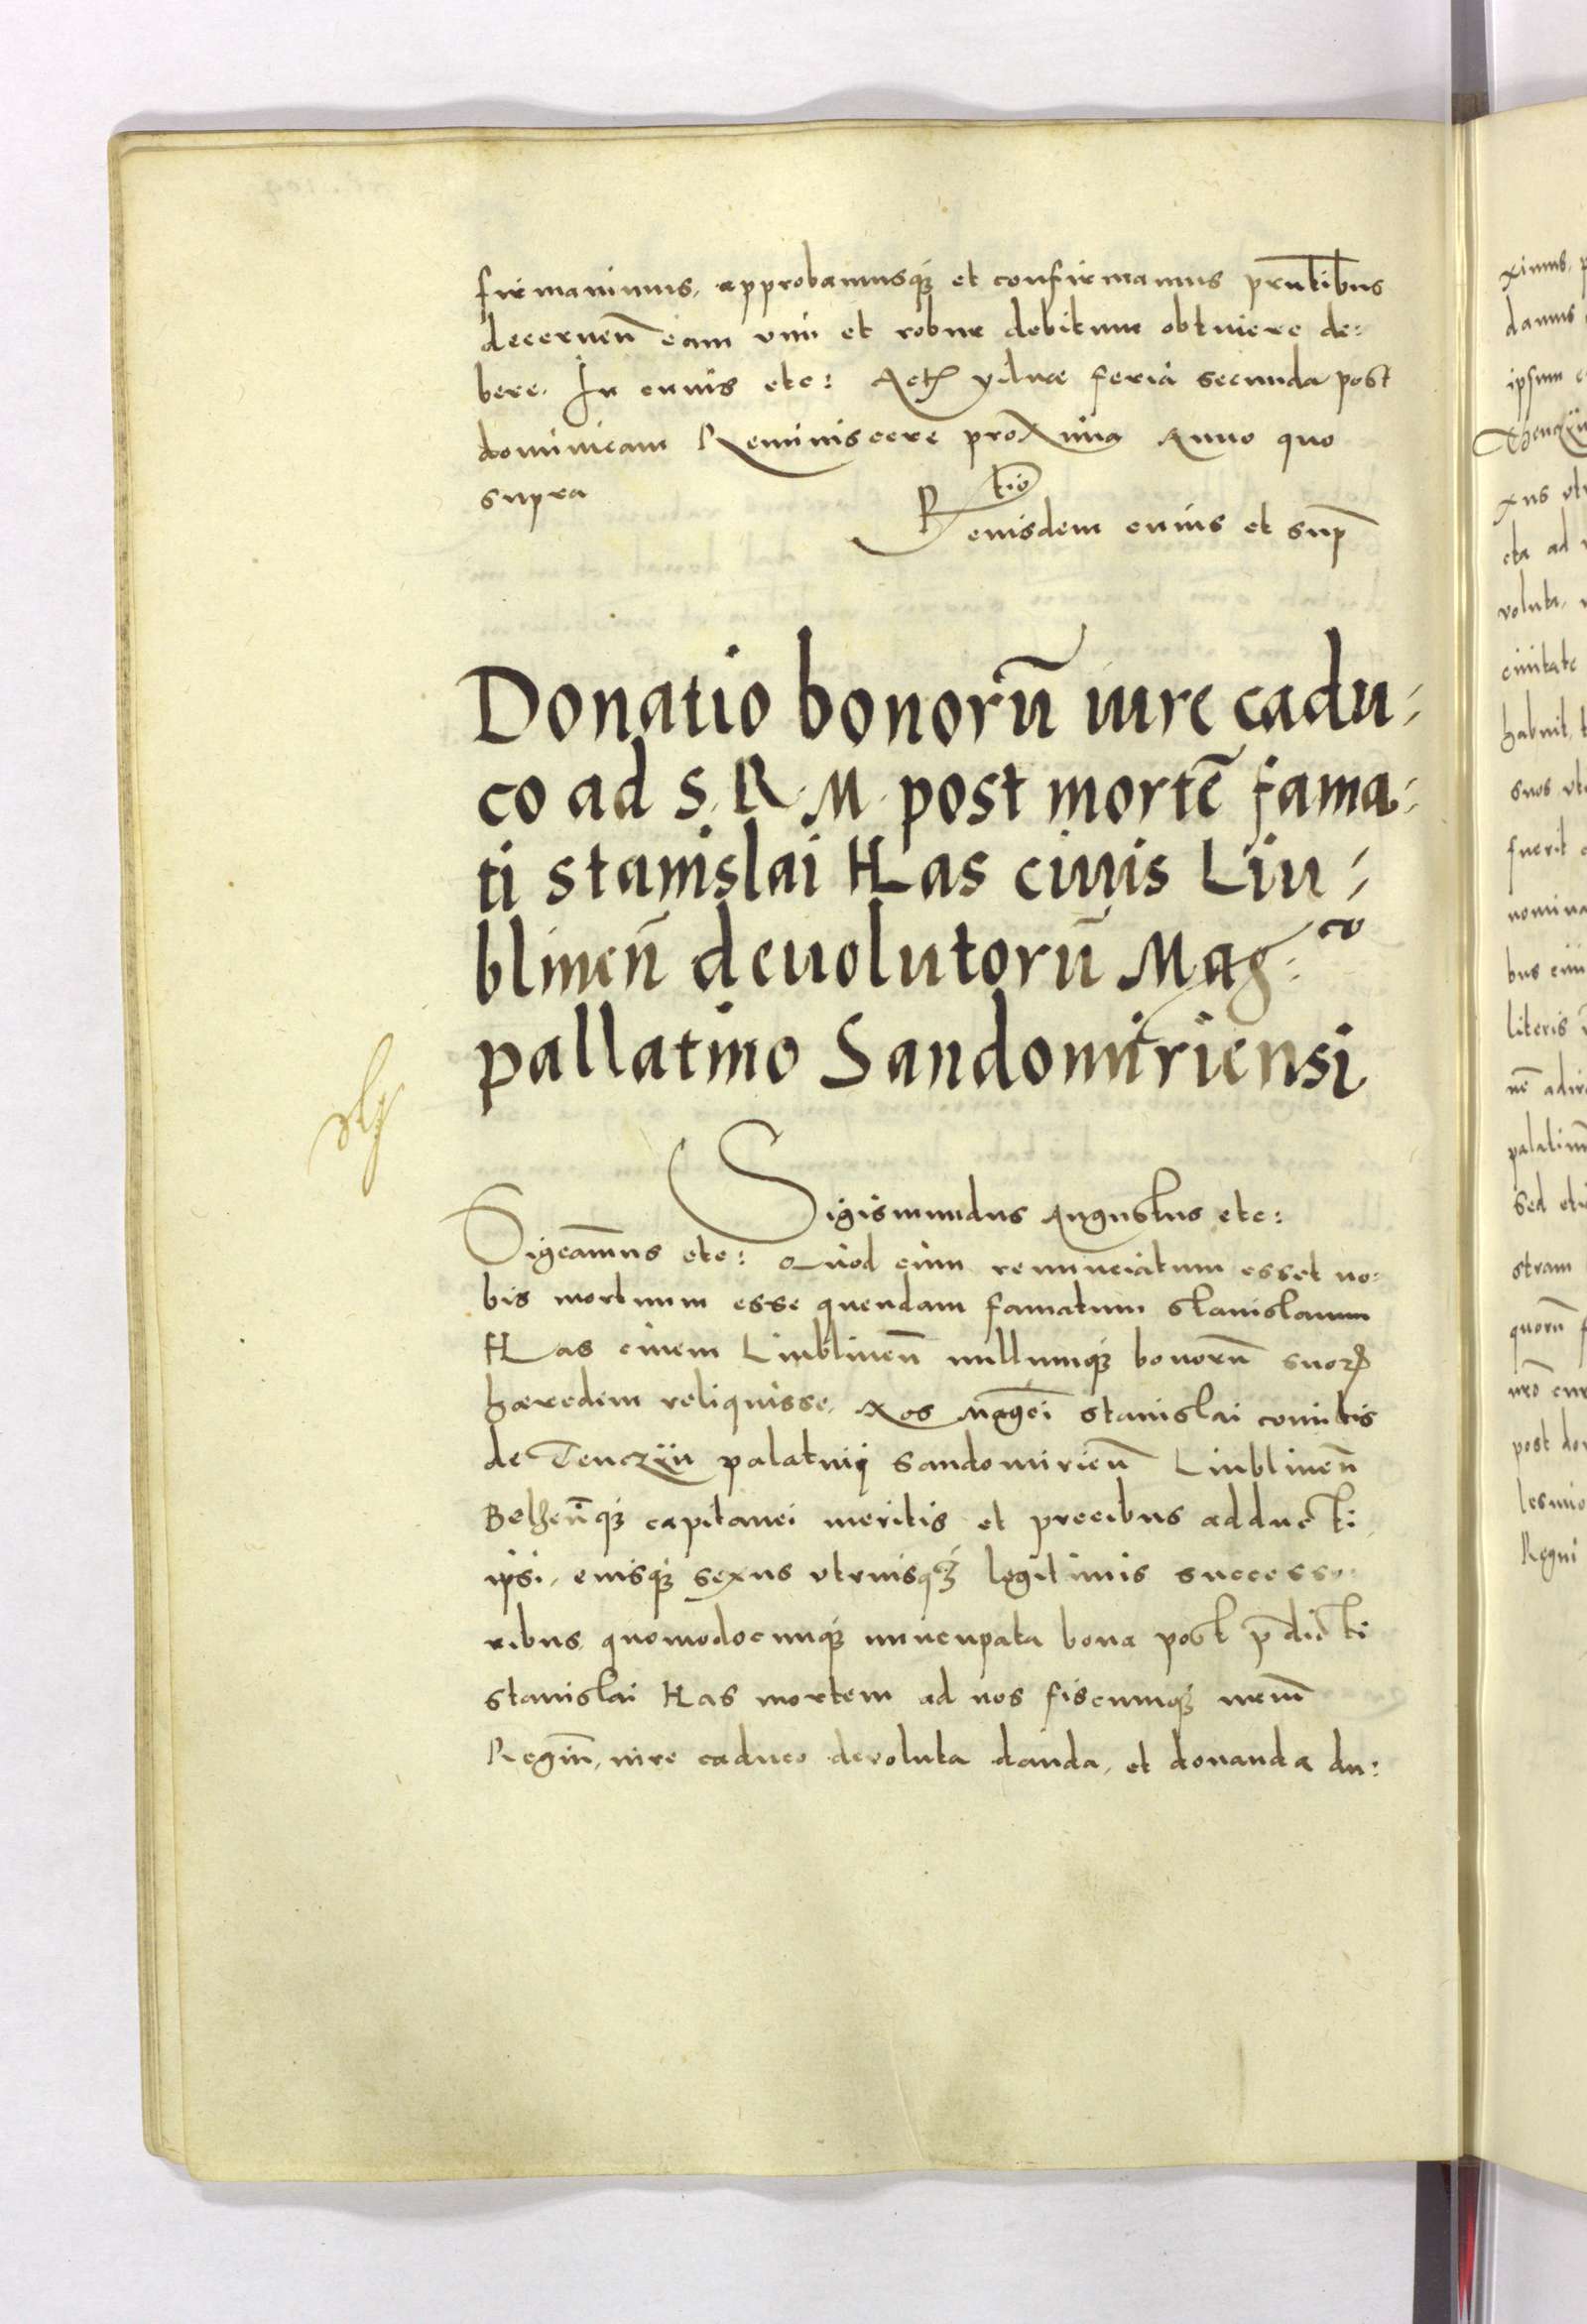 firmauimus, approbamusq3 et confirmamus pr̄ntibus
decernen̄ eam vim et robur debitum obtinere de:
bere. In cuius etc: Act Vilnae feria secunda post
dominicam Reminiscere proxima Anno quo
supra
R tio eiusdem cuius et sup̄
Donatio bonorū iure cadu:
co ad S. R. M. post mortē fama:
ti Stanislai Has ciuis Liu:
blinen̄ deuolutorū Mag:co
pallatino Sandomiriensi
Sigismundus Augustus etc:
Sigcām̄us etc: Quod cum renunciatum esset no:
bis mortuum esse quendam famatum Stanislaum
Has ciuem Liublinen̄ nullumq3 bonorū suor
haeredem reliquisse. Nos Maḡci Stanislai comitis
de Tenczÿn palatini Sandomirien̄ Liublinen̄
Belzen̄q3 capitanei meritis et precibus adducti
ipsi, eiusq3 sexus vtriusq3 legitimis successo:
ribus quomodocunq3 nuncupata bona post p̄dicti
Stanislai Has mortem ad nos fiscumq3 nrum̄
Regiu̅, iure caduco devoluta danda, et donanda du:
xlij
ximus, p
damus
ipsum c
Thenczÿn
xus vtr
cta ad
voluta,
ciuitate
habuit, t
suos vt
fuerit
nomina
bus ciui
literis
nē adir
palatinū
sed eti
stram
quorū f
nr̄o cur
post do
lesimo
Regni